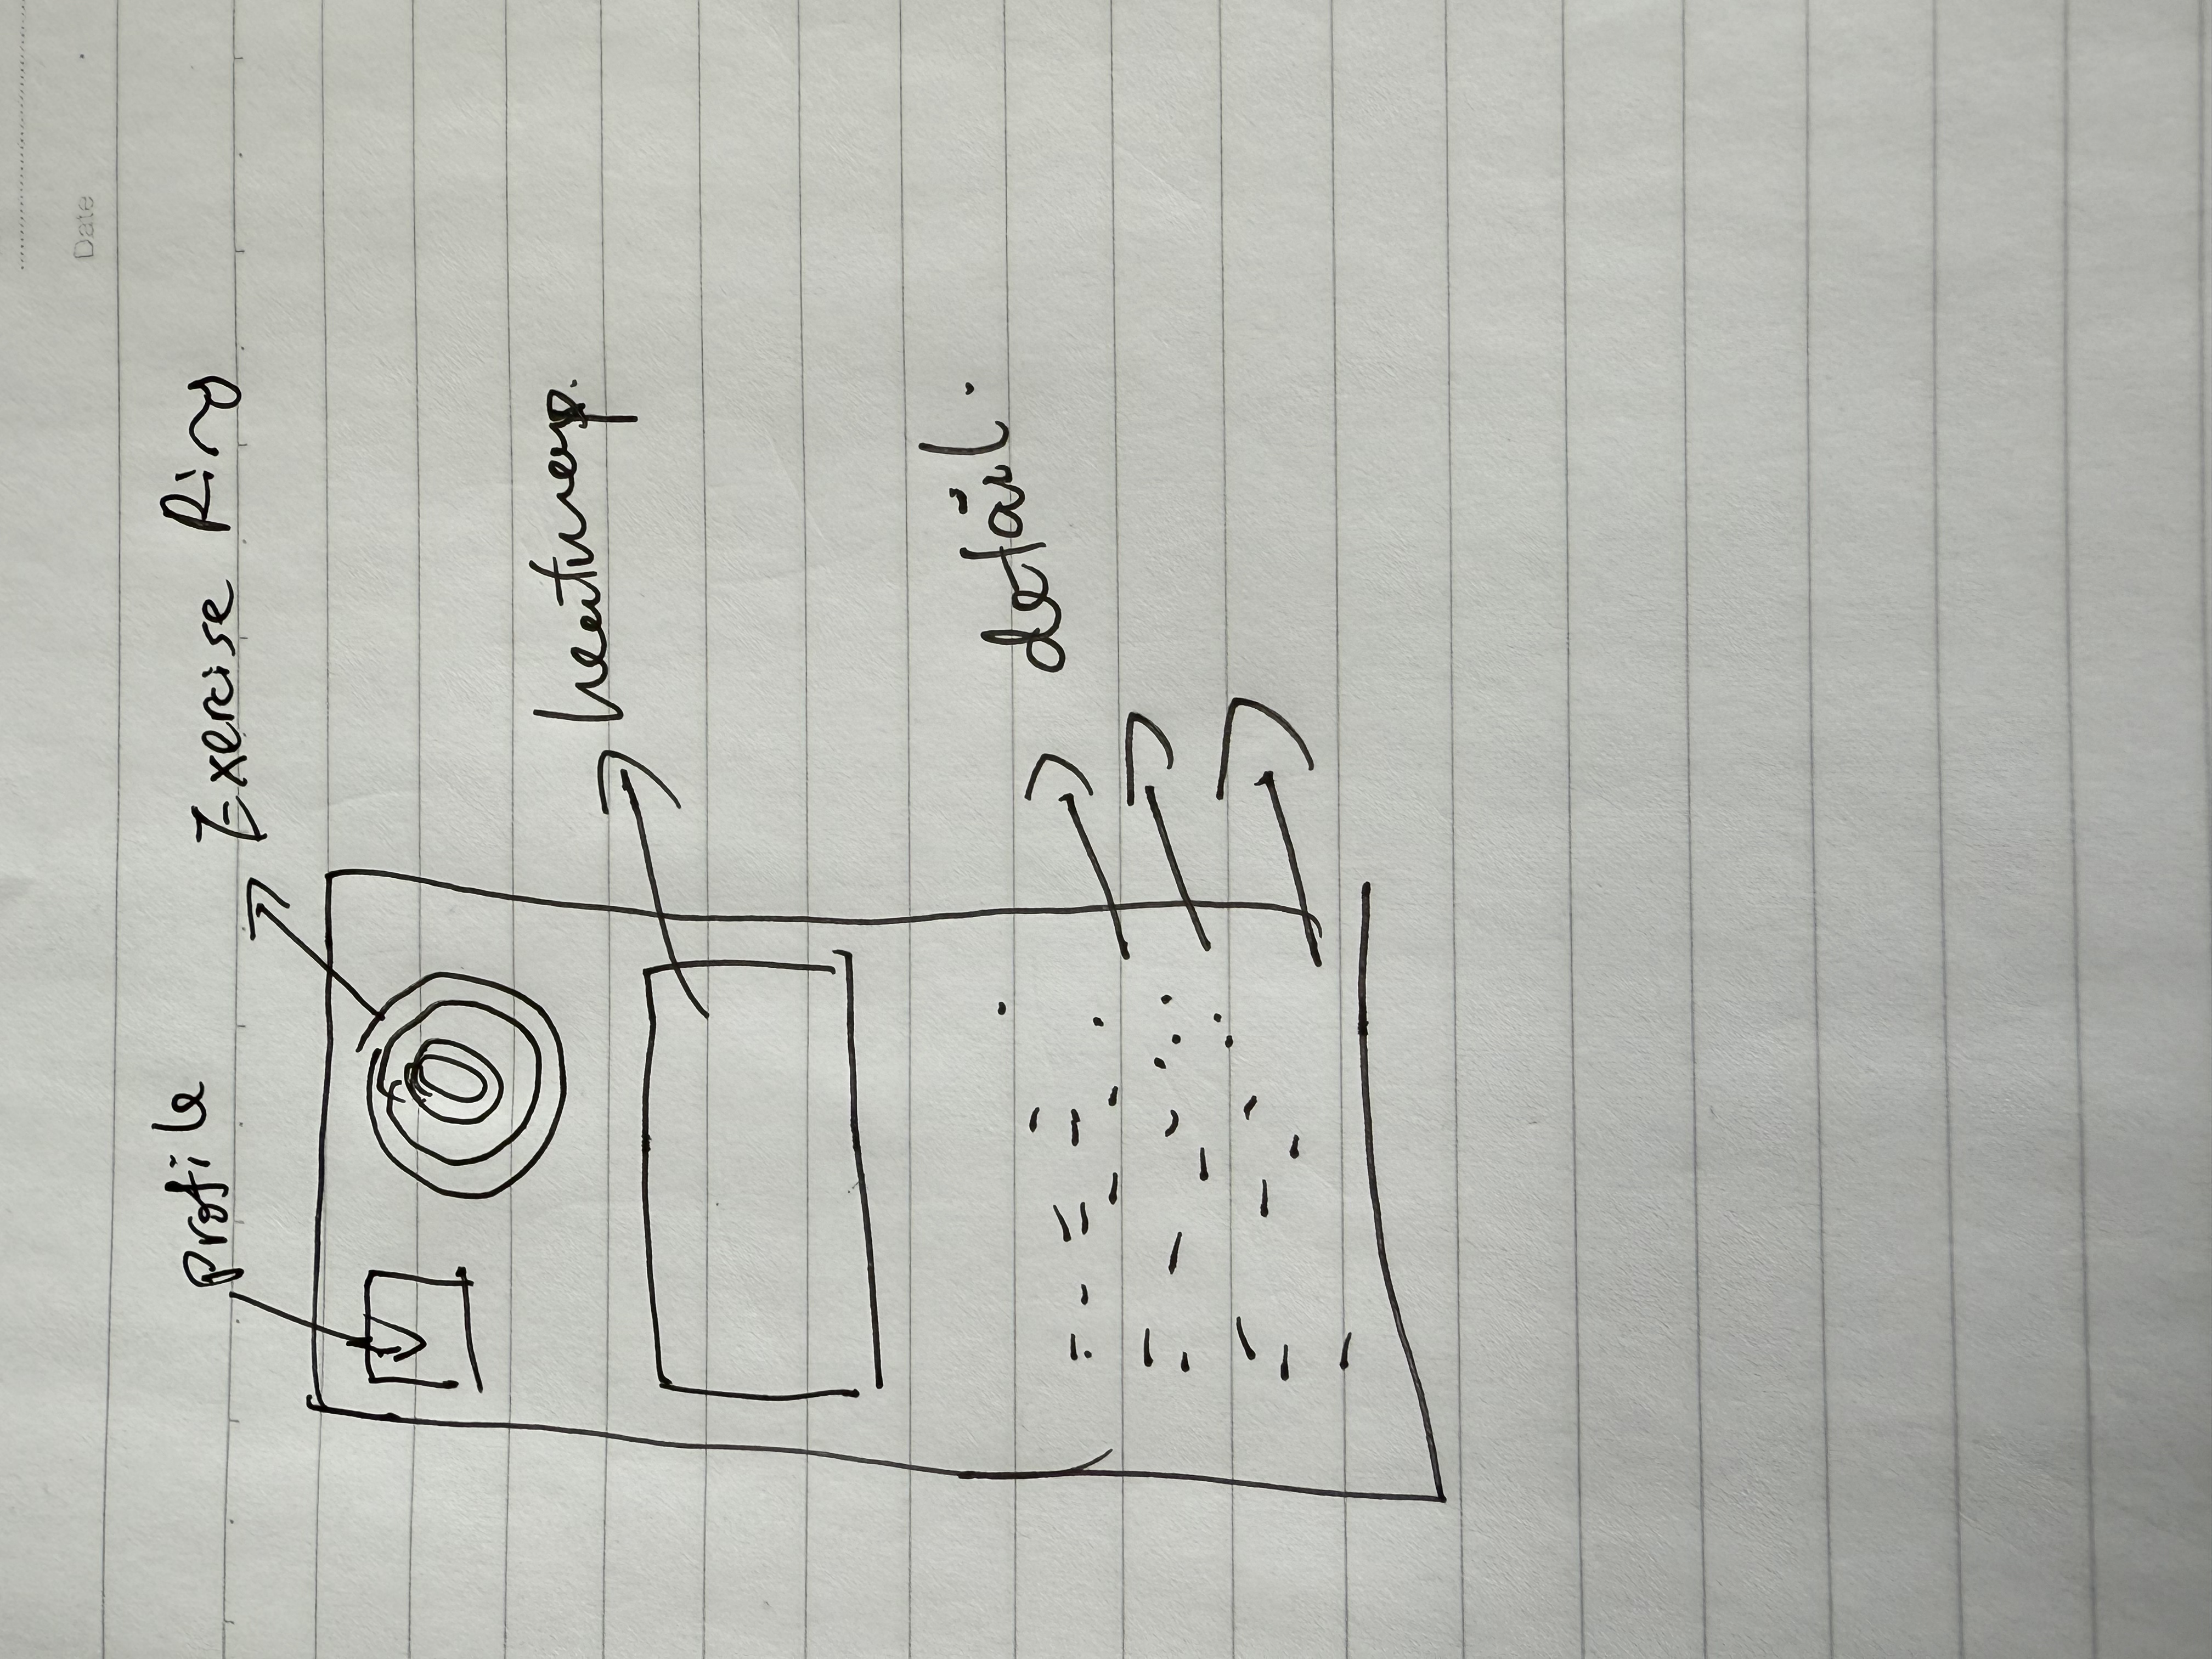 Date
Profile
Exercise Ring
heatmap.
detail.